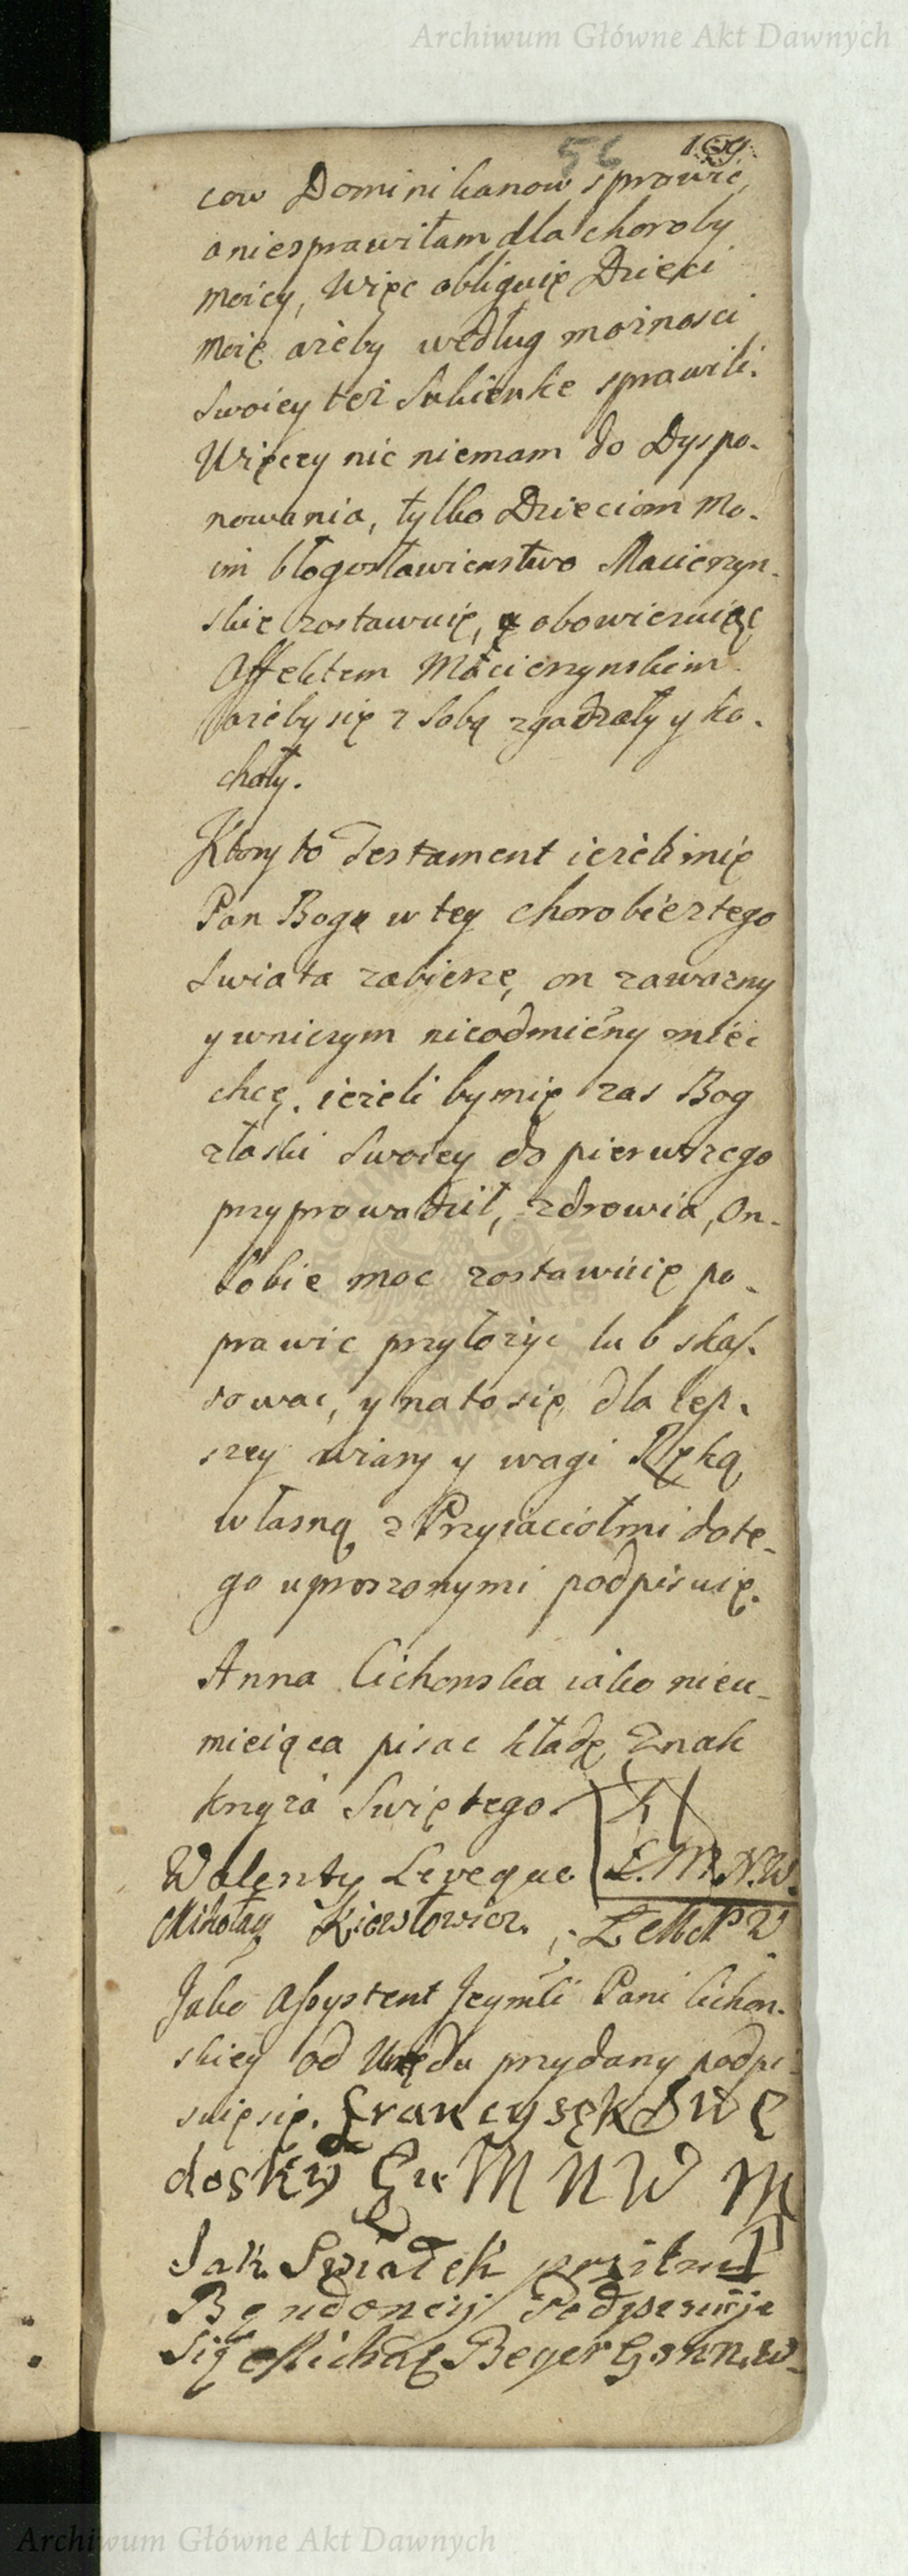 Archiwum Główne Akt Dawnych
56 109
cow Dominikanow sprawić,
a niesprawiłam dla choroby
moiey, Więc obliguię Dzieci
moię ażeby według możnosci
swoiey też Sukienke sprawili.
Więcey nic niemam do Dyspo-
nowania, tylko Dzieciom mo-
im błogosławienstwo Macierzyn-
skie zostawuię, obowiezuiąc
Affektem Macierzynskim
ażeby się z sobą zgadzały y ko-
chały.
Ktory to Testament ieżeli mię
Pan Bog w tey chorobie z tego
Swiata zabierze, on zawazny
y wniczym nieodmięny miec
chcę. ieżeli by mię zas Bog
złaski Swoiey do pierwszego
przyprowadził, zdrowia, on-
Sobie moc zostawuię po-
prawic przyłożyc lub skas-
sowac, y na to się dla lep-
szey wiary y wagi Ręką
własną z Przyiaciołmi do te-
go uproszonymi podpisuię.
Anna Cichonska iako nieu-
mieiąca pisac kładę Znak
krzyża Swiętego.
Walenty Leveque Ł.M.N.W.
Mikołay Kiersłowicz. Ł M P W
Jako Assystent Jeymći Pani Cichon-
skiey od Urzędu przydany podpi-
suię się. Francyszęk Swę
doskÿ Gu M N W
Jak Swiadek
Podpesuije
Się Michał Beyer G M N W
Archiwum Główne Akt Dawnych